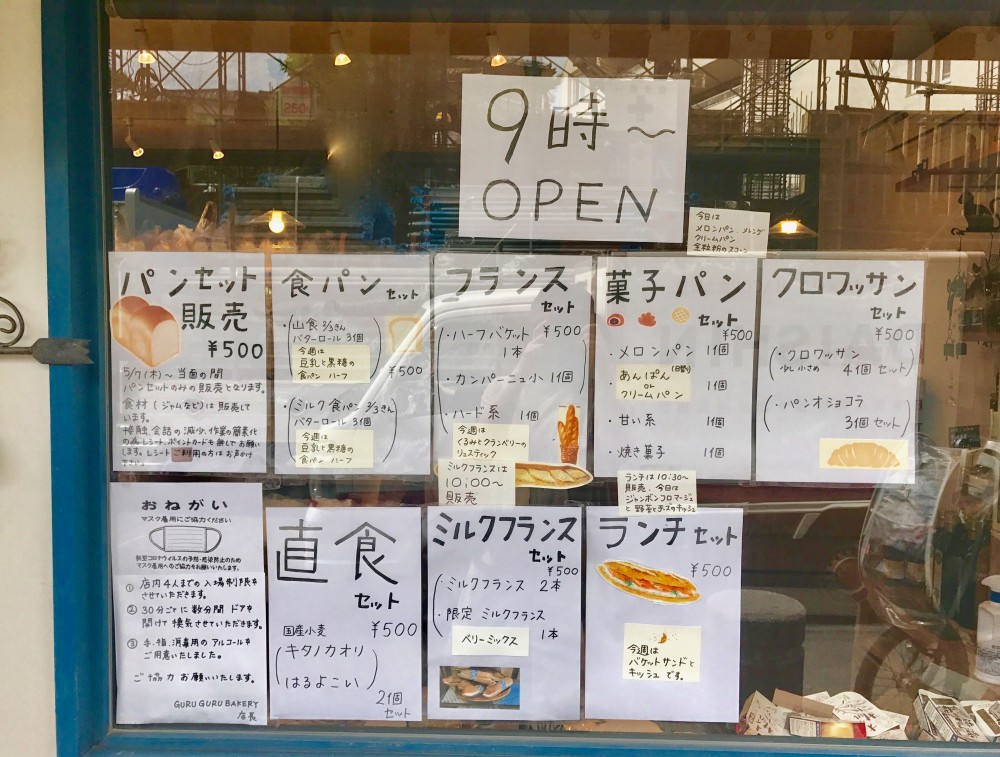 9時～
OPEN
今日は
メロンパン、メレンゲ
クリームパン
全粒粉のスコーン
パンセット
販売
¥500
5/7(木)～当面の間
パンセットのみの販売となります。
食材(ジャムなど)は販売して
います。
接触、会話の減少、作業の簡素化
の為、レシート、ポイントカードも無しでお願い
します。レシートご利用の方はお声かけ
下さい。
食パンセット
・山食 2/3きん
バターロール 3個
今週は
豆乳と黒糖の
食パン ハーフ
¥500
・ミルク食パン 2/3きん
バターロール 3個
今週は
豆乳と黒糖の
食パン ハーフ
フランス
セット
・ハーフバゲット ¥500
1本
・カンパーニュ小 1個
・ハード系 1個
今週は
くるみとクランベリーの
リュスティック
ミルクフランスは
10:00～
販売
菓子パン
セット
¥500
・メロンパン 1個
あんぱん(日替り)
or
クリームパン
1個
・甘い系 1個
・焼き菓子 1個
クロワッサン
セット
¥500
・クロワッサン
少し小さめ 4個セット
・パンオショコラ
3個セット
おねがい
マスク着用にご協力ください
新型コロナウィルスの予防・感染防止のため
マスク着用へのご協力をお願いいたします。
① 店内4人までの入場制限を
させていただきます。
② 30分ごとに数分間ドアを
開けて換気させていただきます。
③ 手、指、消毒用のアルコールを
ご用意いたしました。
ご協力お願いいたします。
GURU GURU BAKERY
店長
直食
セット
国産小麦 ¥500
キタノカオリ
はるよこい
2個
セット
ミルクフランス
セット
¥500
・ミルクフランス 2本
・限定 ミルクフランス
ベリーミックス
1本
ランチは10:30～
販売、今日は
ジャンボンフロマージュ
と野菜とチーズのキッシュ
ランチセット
¥500
今週は
バゲットサンドと
キッシュです。